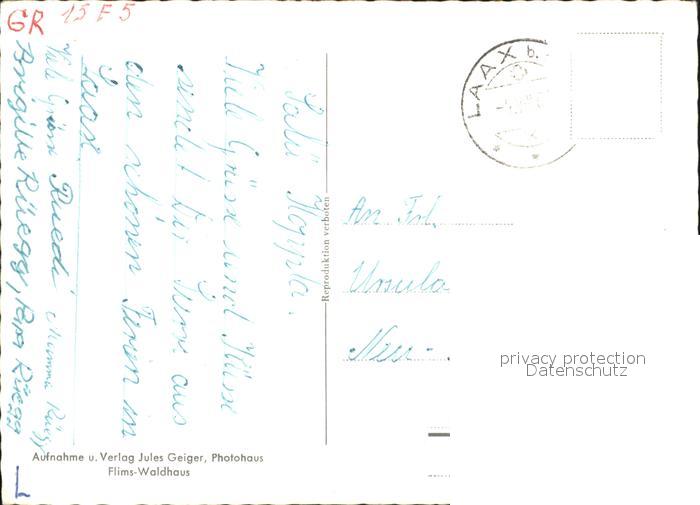 GR 15 F 5
Salü
Viele Grüsse und Küsse
sendet Dir
aus
den schönen Ferien in
Laax.
Viele Grüsse Ruedi Mamma Rüegg
Brigitte Rüegg, Papa Rüegg
Reproduktion verboten
LAAX b.
An Frl.
Ursula
Neu-
privacy protection
Datenschutz
Aufnahme u. Verlag Jules Geiger, Photohaus
Flims-Waldhaus